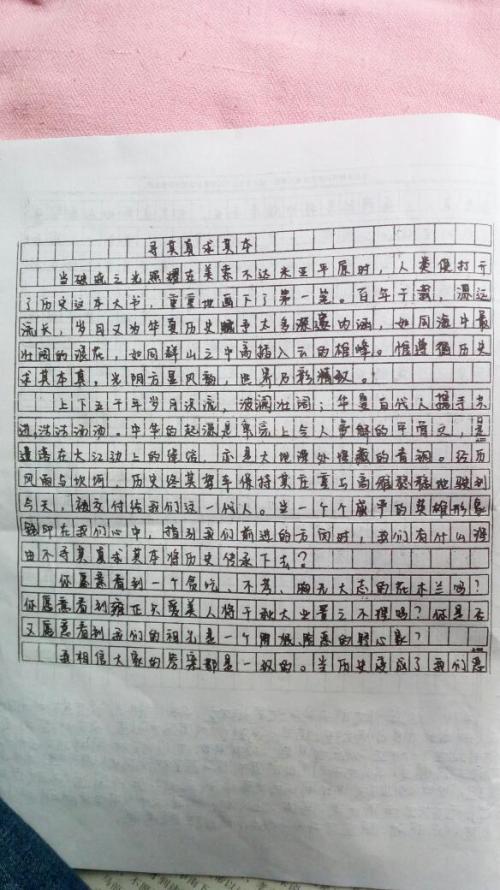 寻其真求其本
当破晓之光照耀在美索不达米亚平原时，人类便打开
了历史这本大书，重重地画下了第一笔。百年千载，源远
流长，岁月又为华夏历史赋予太多深邃内涵，如同海中最
壮阔的浪花，如同群山之中高插入云的雄峰。惟遵循历史
求其本真，光阴方显风韵，世界乃彰精致。
上下五千年岁月决流，波澜壮阔；华夏百代人携手共
进，浩浩汤汤。中华的起源是龟壳上令人费解的甲骨文，是
遗迹在大江边上的绿锈，亦是大地深处埋藏的青铜。经历
风雨与坎坷，历史终其誓卒保持其庄重与高雅稳稳地驶到
今天，被交付给我们这一代人。当一个个崇尹的英雄形象
铭印在我们心中，指引我们前进的方向时，我们有什么理
由不寻其真求其本将历史传承下去？
你愿意看到一个贪吃、不孝、胸无大志的花木兰吗？
你愿意看到雍正只爱美人将千秋大业置之不理吗？你是否
又愿意看到我们的祖先是一个用狠险恶的野心家？
我相信大家的答案都是一致的。当历史变成了我们